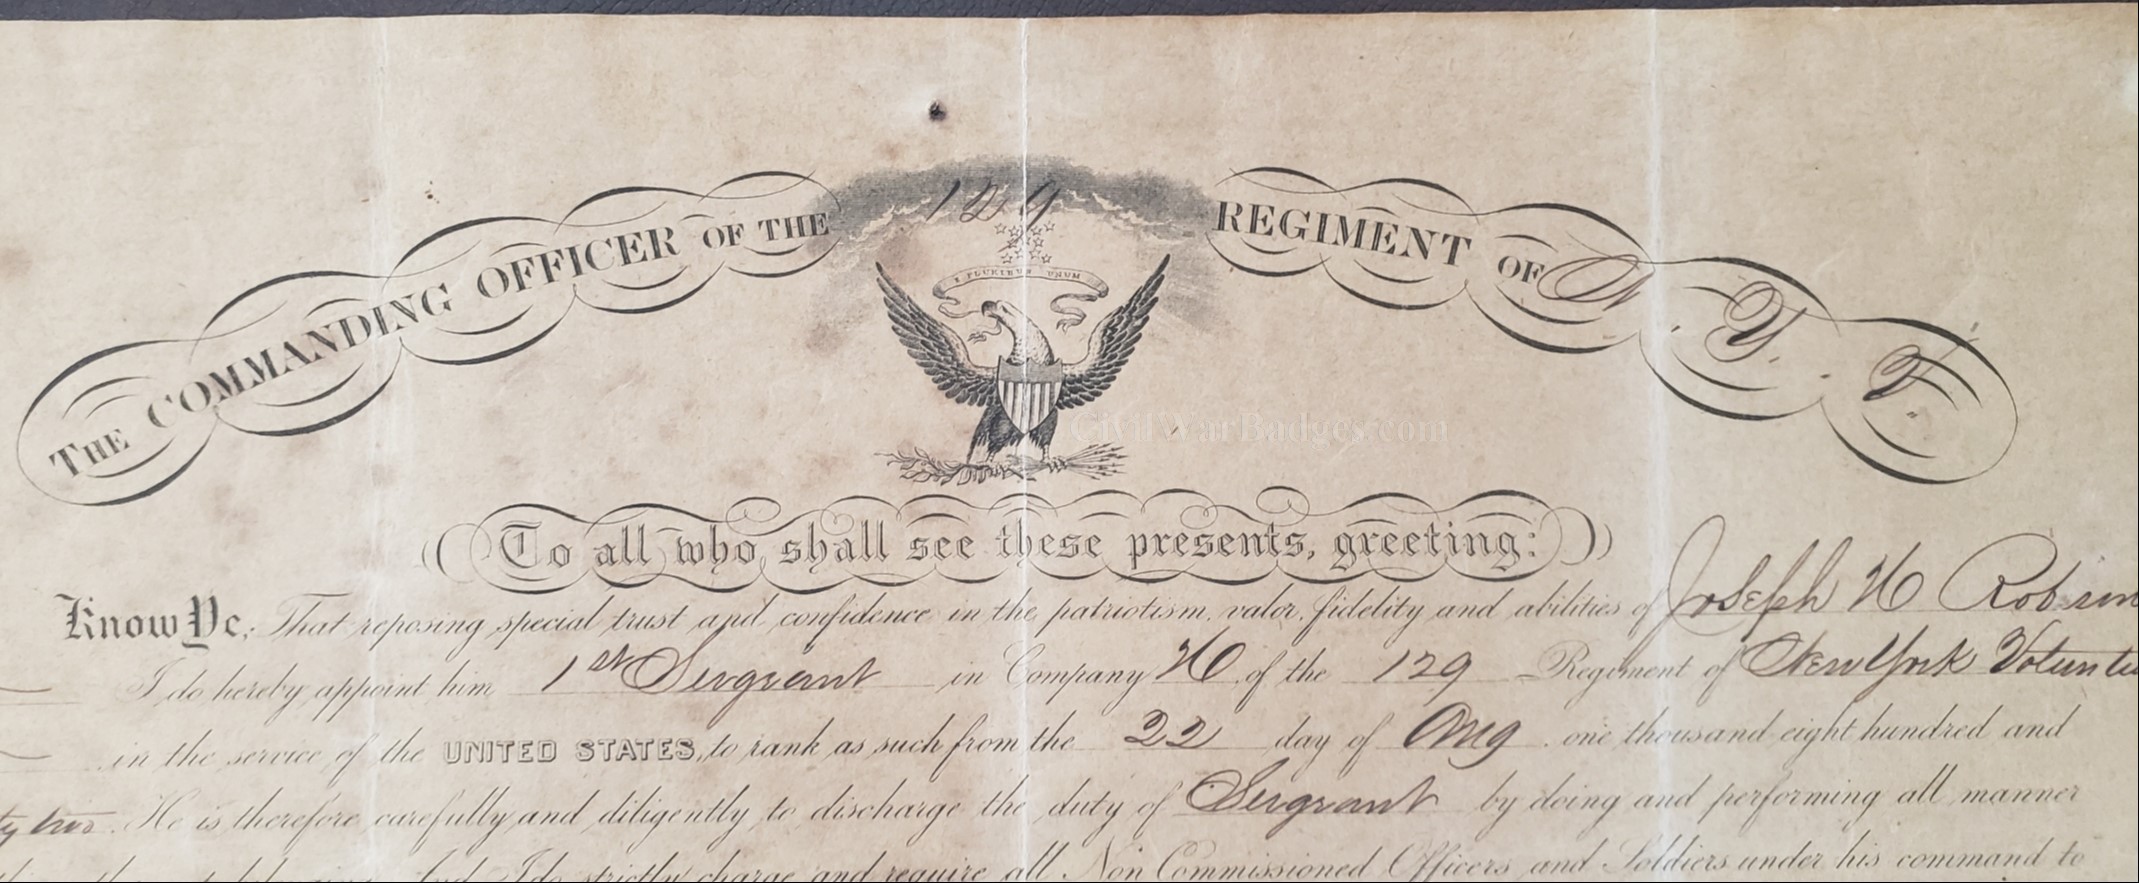 THE COMMANDING OFFICER OF THE 129 REGIMENT OF N. Y. V.
E PLURIBUS UNUM
CivilWarBadges.com
To all who shall see these presents, greeting:
Know Ye, That reposing special trust and confidence in the patriotism, valor, fidelity and abilities of Joseph H Robinson
I do hereby appoint him 1st Sergeant in Company H of the 129 Regiment of New York Volunteers
in the service of the UNITED STATES, to rank as such from the 22 day of Aug. one thousand eight hundred and
ty two. He is therefore carefully and diligently to discharge the duty of Sergeant by doing and performing all manner
belonging. And I do strictly charge and require all Non Commissioned Officers and Soldiers under his command to